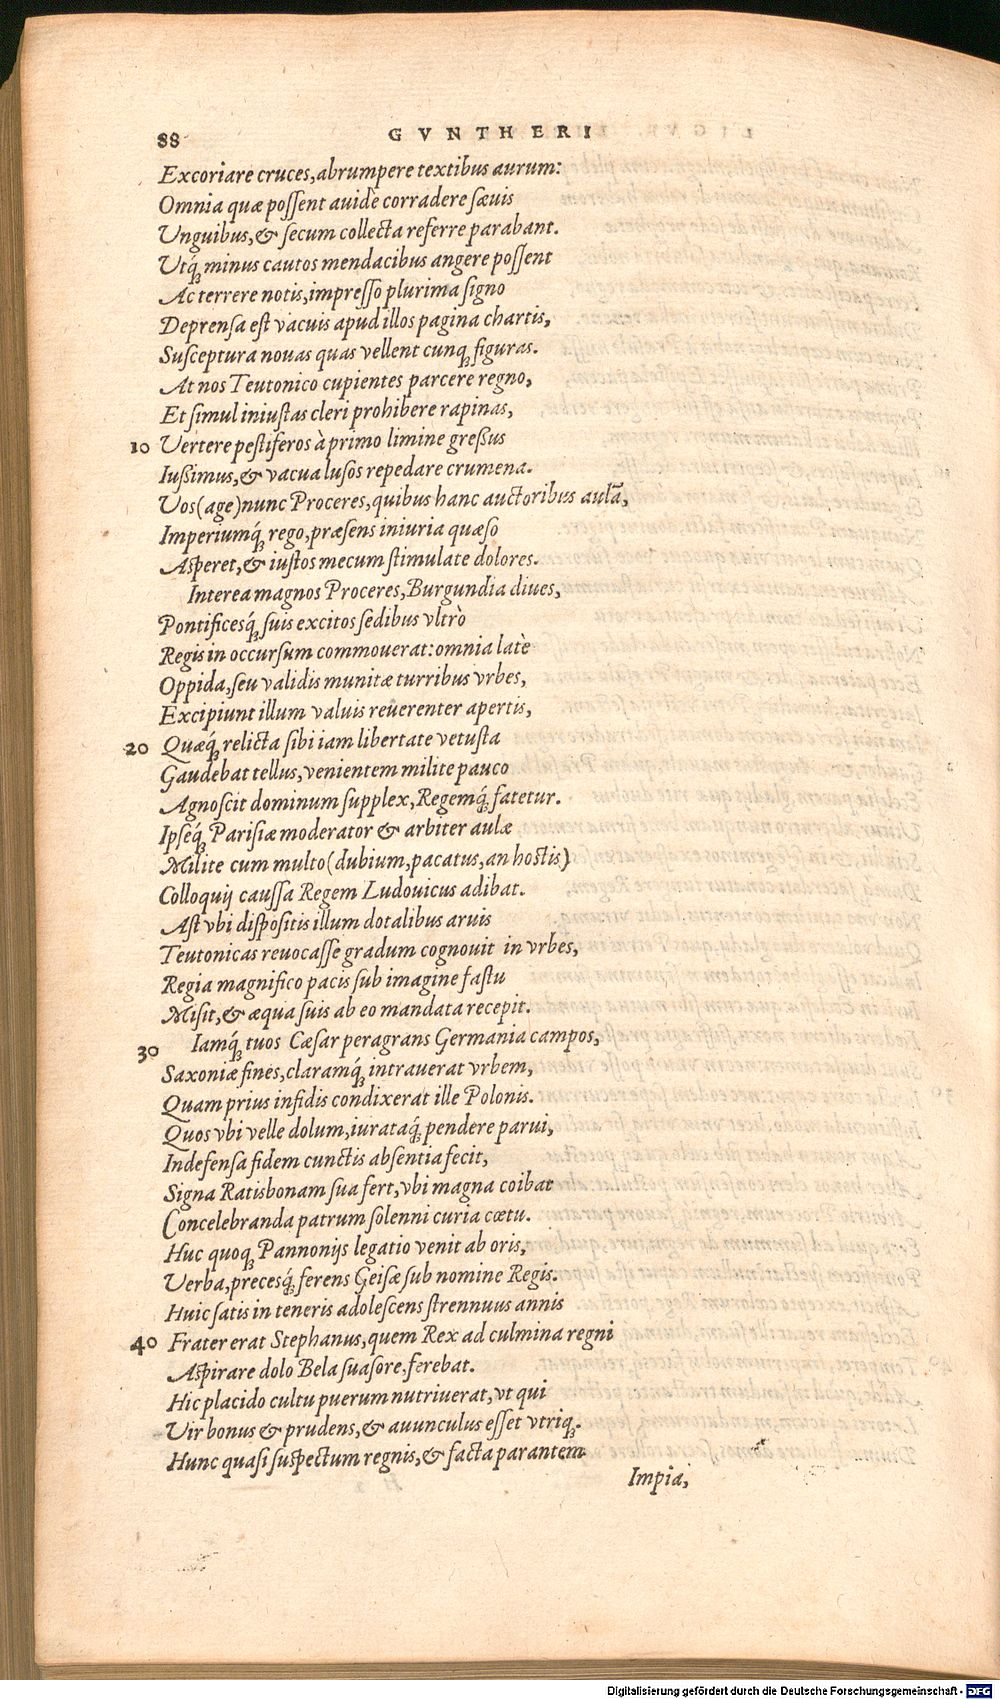 88 GVNTHERI
Excoriare cruces, abrumpere textibus aurum:
Omnia quæ poſſent auidè corradere ſæuis
Unguibus, & ſecum collecta referre parabant.
Utq́; minus cautos mendacibus angere poſſent
Ac terrere notis, impreſſo plurima ſigno
Deprenſa eſt vacuis apud illos pagina chartis,
Suſceptura nouas quas vellent cunq; figuras.
At nos Teutonico cupientes parcere regno,
Et ſimul iniuſtas cleri prohibere rapinas,
10 Vertere peſtiferos à primo limine greſſus
Iuſſimus, & vacua luſos repedare crumena.
Vos (age) nunc Proceres, quibus hanc auctoribus aulā,
Imperiumq́; rego, præſens iniuria quæſo
Aſperet, & iuſtos mecum ſtimulate dolores.
Interea magnos Proceres, Burgundia diues,
Pontificesq́; ſuis excitos ſedibus vltrò
Regis in occurſum commouerat: omnia latè
Oppida, ſeu validis munitæ turribus vrbes,
Excipiunt illum valuis reuerenter apertis,
20 Quæq́; relicta ſibi iam libertate vetuſta
Gaudebat tellus, venientem milite pauco
Agnoſcit dominum ſupplex, Regemq́; fatetur.
Ipſeq́; Pariſiæ moderator & arbiter aulæ
Milite cum multo (dubium, pacatus, an hoſtis)
Colloquij cauſſa Regem Ludouicus adibat.
Aſt vbi diſpoſitis illum dotalibus aruis
Teutonicas reuocaſſe gradum cognouit in vrbes,
Regia magnifico pacis ſub imagine faſtu
Miſit, & æqua ſuis ab eo mandata recepit.
30 Iamq́; tuos Cæſar peragrans Germania campos,
Saxoniæ fines, claramq́; intrauerat vrbem,
Quam prius infidis condixerat ille Polonis.
Quos vbi velle dolum, iurataq́; pendere parui,
Indefenſa fidem cunctis abſentia fecit,
Signa Ratisbonam ſua fert, vbi magna coibat
Concelebranda patrum ſolenni curia cœtu.
Huc quoq; Pannonijs legatio venit ab oris,
Verba, precesq́; ferens Geiſæ ſub nomine Regis.
Huic ſatis in teneris adoleſcens ſtrennuus annis
40 Frater erat Stephanus, quem Rex ad culmina regni
Aſpirare dolo Bela ſuaſore, ferebat.
Hic placido cultu puerum nutriuerat, vt qui
Vir bonus & prudens, & auunculus eſſet vtriq;.
Hunc quaſi ſuſpectum regnis, & facta parantem
Impia,
Digitalisierung gefördert durch die Deutsche Forschungsgemeinschaft - DFG